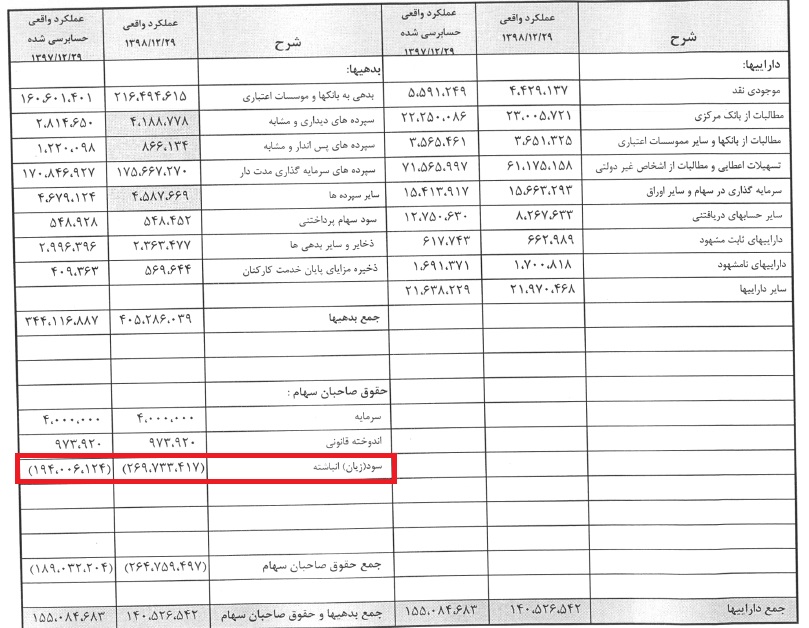 شرح	عملکرد واقعی ۱۳۹۸/۱۲/۲۹	عملکرد واقعی حسابرسی شده ۱۳۹۷/۱۲/۲۹	شرح	عملکرد واقعی ۱۳۹۸/۱۲/۲۹	عملکرد واقعی حسابرسی شده ۱۳۹۷/۱۲/۲۹
داراییها:	بدهیها:
موجودی نقد	۴.۴۲۹.۱۳۷	۵.۵۹۱.۲۴۹	بدهی به بانکها و موسسات اعتباری	۲۱۶.۴۹۴.۶۱۵	۱۶۰.۶۰۱.۴۰۱
مطالبات از بانک مرکزی	۲۳.۰۰۵.۷۲۱	۲۲.۲۵۰.۰۸۶	سپرده های دیداری و مشابه	۴.۱۸۸.۷۷۸	۲.۸۱۴.۶۵۰
مطالبات از بانکها و سایر مموسسات اعتباری	۳.۶۵۱.۳۲۵	۳.۵۶۵.۴۶۱	سپرده های پس انداز و مشابه	۸۶۶.۱۳۴	۱.۲۲۰.۰۹۸
تسهیلات اعطایی و مطالبات از اشخاص غیر دولتی	۶۱.۱۷۵.۱۵۸	۷۱.۵۶۵.۹۹۷	سپرده های سرمایه گذاری مدت دار	۱۷۵.۶۶۷.۲۷۰	۱۷۰.۸۴۶.۹۲۷
سرمایه گذاری در سهام و سایر اوراق	۱۵.۶۶۳.۲۹۳	۱۵.۴۱۳.۹۱۷	سایر سپرده ها	۴.۵۸۷.۶۶۹	۴.۶۷۹.۱۲۴
سایر حسابهای دریافتنی	۸.۲۶۷.۶۳۳	۱۲.۷۵۰.۶۳۰	سود سهام پرداختنی	۵۴۸.۴۵۲	۵۴۸.۹۲۸
داراییهای ثابت مشهود	۶۶۲.۹۸۹	۶۱۷.۷۴۳	ذخایر و سایر بدهی ها	۲.۳۶۳.۴۷۷	۲.۹۹۶.۳۹۶
داراییهای نامشهود	۱.۷۰۰.۸۱۸	۱.۶۹۱.۳۷۱	ذخیره مزایای پایان خدمت کارکنان	۵۶۹.۶۴۴	۴۰۹.۳۶۳
سایر داراییها	۲۱.۹۷۰.۴۶۸	۲۱.۶۳۸.۲۲۹
جمع بدهیها	۴۰۵.۲۸۶.۰۳۹	۳۴۴.۱۱۶.۸۸۷
حقوق صاحبان سهام :
سرمایه	۴.۰۰۰.۰۰۰	۴.۰۰۰.۰۰۰
اندوخته قانونی	۹۷۳.۹۲۰	۹۷۳.۹۲۰
سود(زیان) انباشته	(۲۶۹.۷۳۳.۴۱۷)	(۱۹۴.۰۰۶.۱۲۴)
جمع حقوق صاحبان سهام	(۲۶۴.۷۵۹.۴۹۷)	(۱۸۹.۰۳۲.۲۰۴)
جمع داراییها	۱۴۰.۵۲۶.۵۴۲	۱۵۵.۰۸۴.۶۸۳	جمع بدهیها و حقوق صاحبان سهام	۱۴۰.۵۲۶.۵۴۲	۱۵۵.۰۸۴.۶۸۳